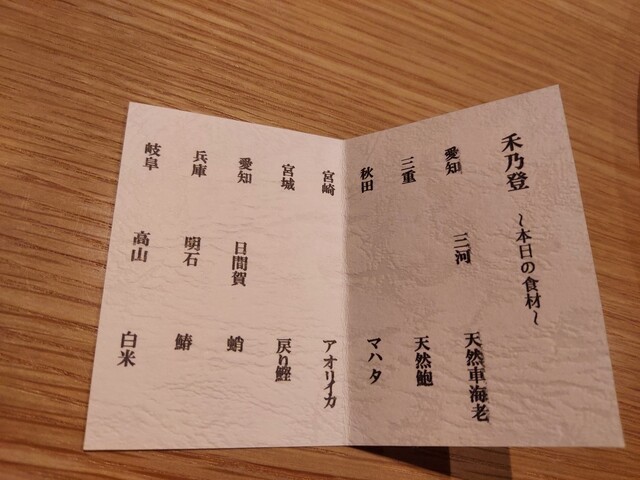 禾乃登 ～本日の食材～
愛知 三河 天然車海老
三重 天然鮑
秋田 マハタ
宮崎 アオリイカ
宮城 戻り鰹
愛知 日間賀 蛸
兵庫 明石 鰆
岐阜 高山 白米